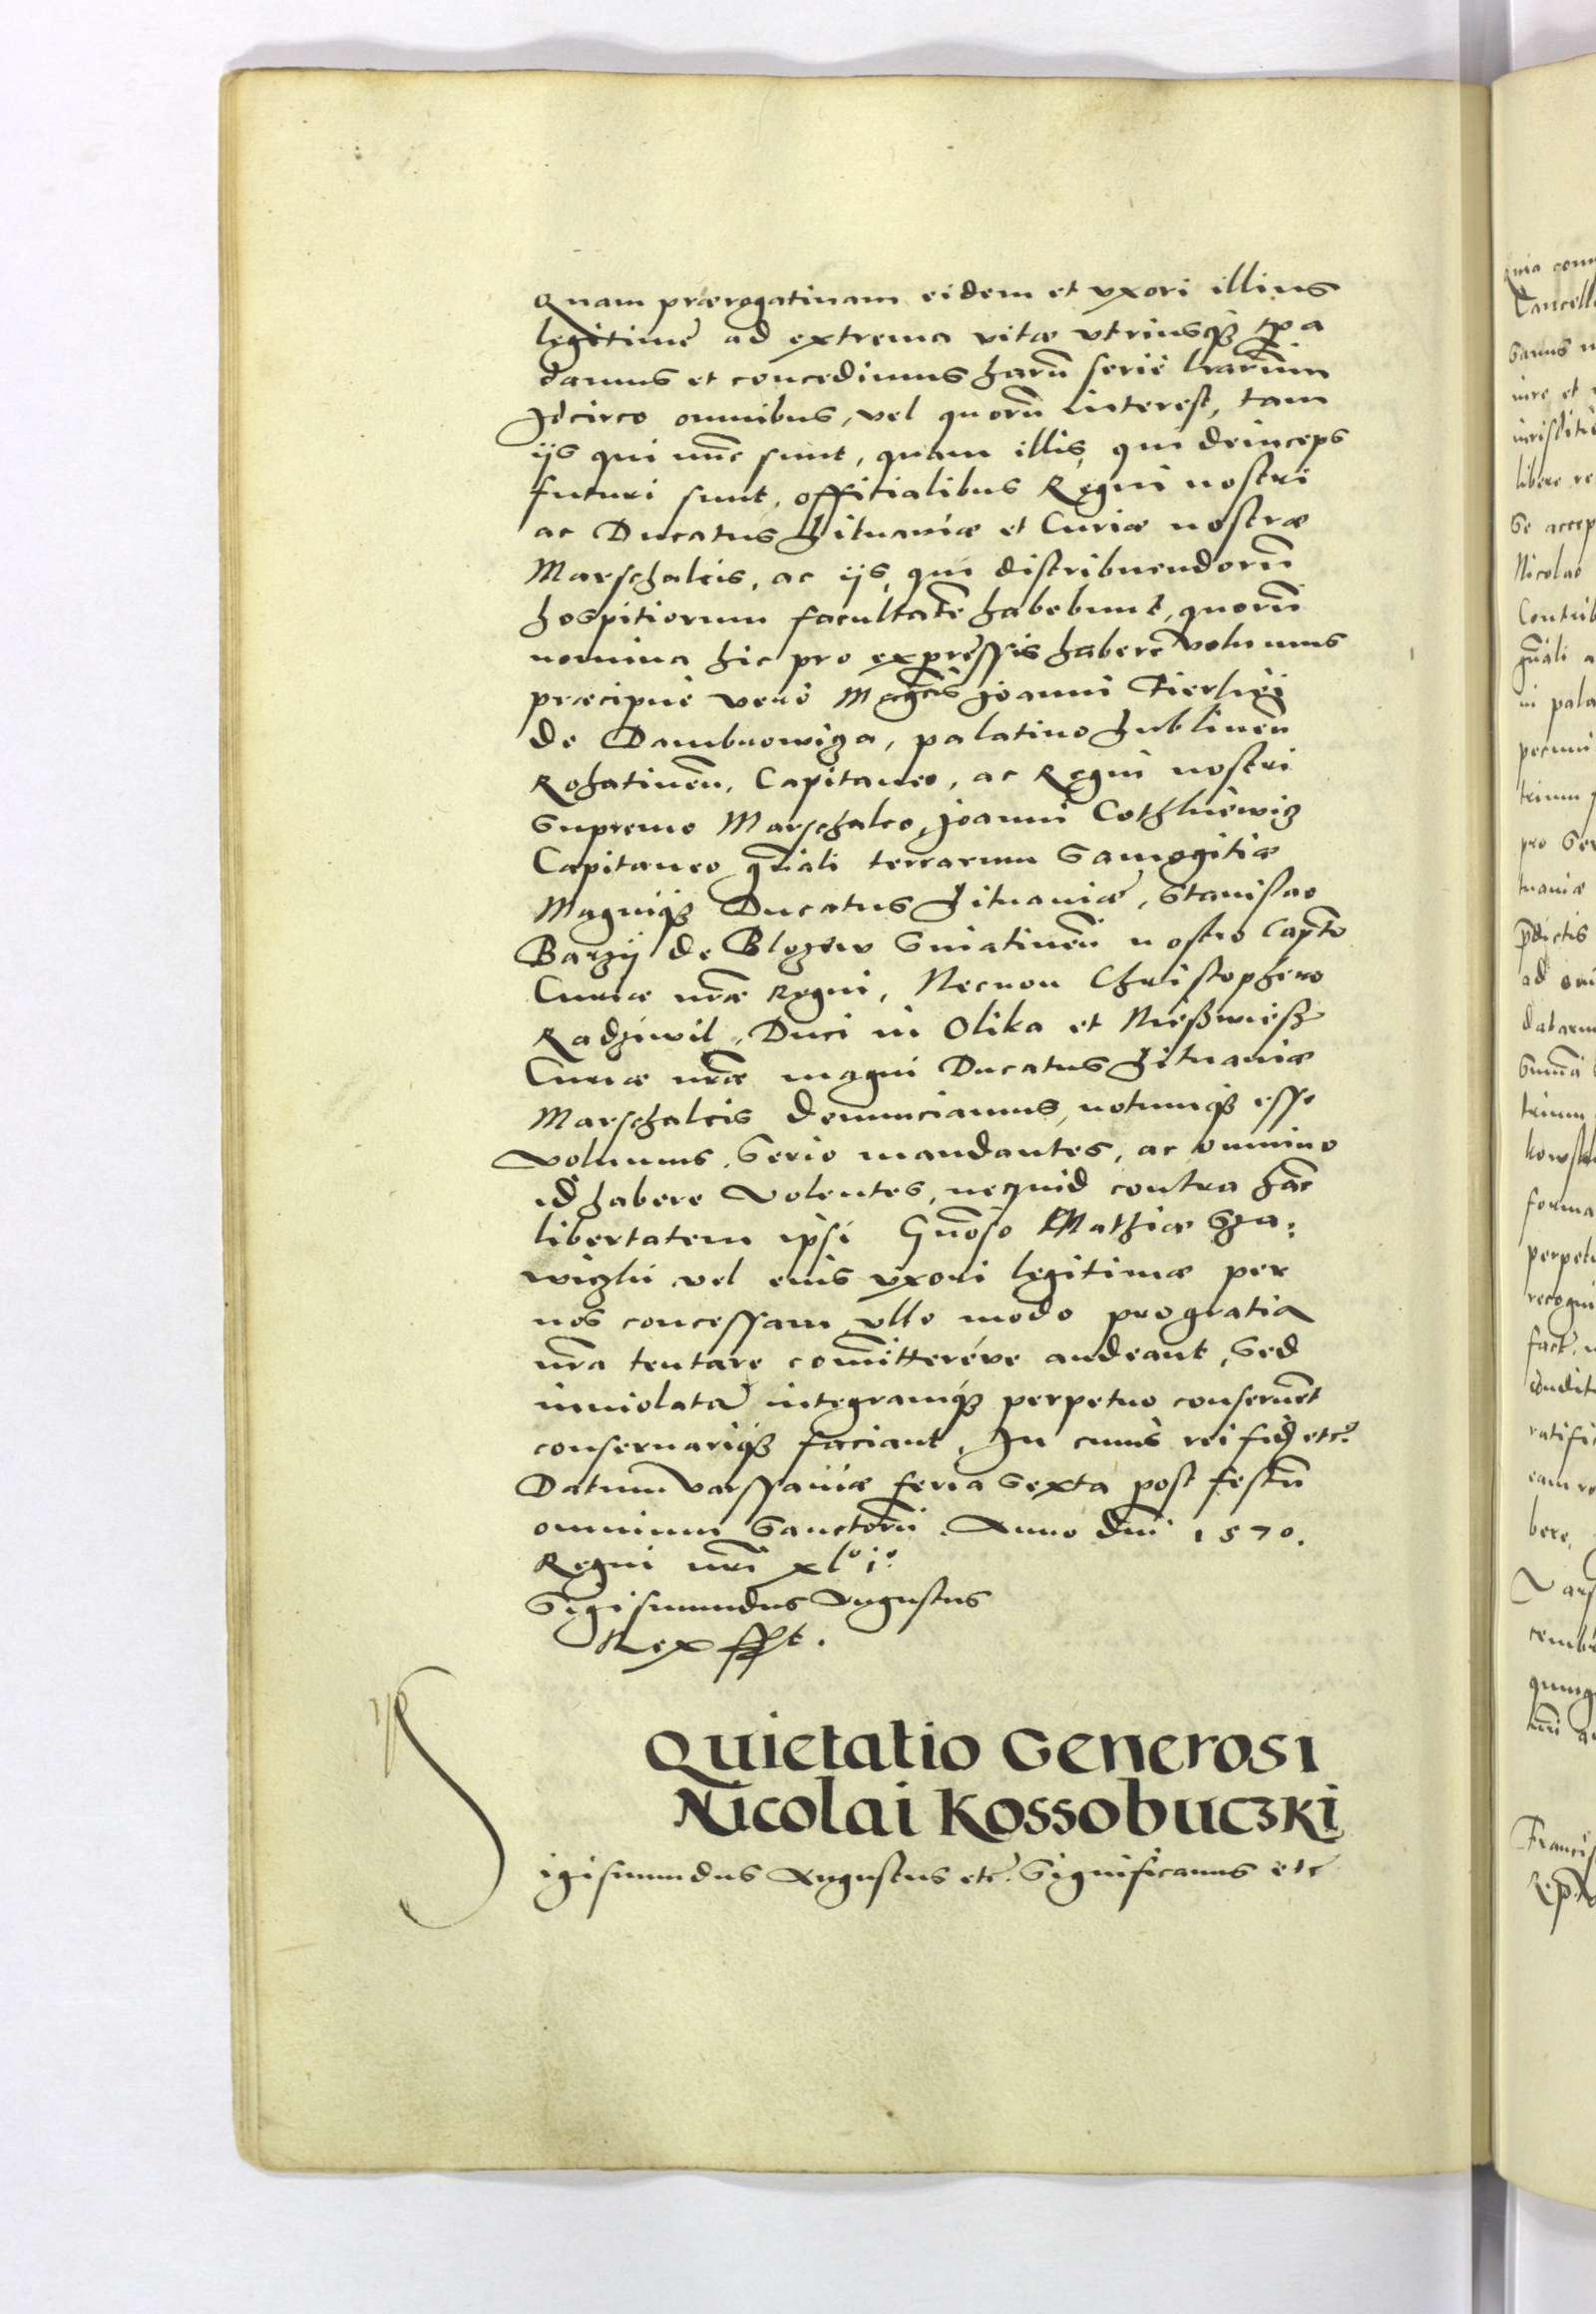 Quam prærogatiuam eidem et vxori illius
legitimę ad extrema vitæ vtriusq3 tp̃a
damus et concedimus harũ serie lr̃arũm
Jdcirco omnibus, vel quorũ interest, tam
ijs qui nũc sunt, quam illis, qui deinceps
futuri sunt, officialibus Regni nostri
ac Ducatus Lituaniæ et Curiæ nostræ
Marschalcis, ac ijs, qui distribuendorũ
hospitiorum facultatẽ habebunt, quorũ
nomina hic pro expressis habere volumus
præcipue vero Mag̃cis Joanni Fierlieij
de Dambrowiza, palatino Lublineñ
Rohatineñ, Capitaneo, ac Regni nostri
Supremo Marschalco, Joanni Cothkiewiz
Capitaneo gñali terrarum Samogitiæ
Magniq3 Ducatus Lituaniæ, Stanislao
Barzij de Blozew Sniatineñ nostro Capt̃o
Curiæ nr̃æ Regni, Necnon Christophero
Radziwil, Duci in Olika et Nießwieß
Curiæ nr̃æ magni Ducatus Lituaniæ
Marschalcis denunciamus, notumq3 esse
volumus, Serio mandantes, ac omnino
id habere volentes, nequid contra hãc
libertatem ipsi Gñoso Mathiæ Sza:
wizki vel eius vxori legitimæ per
nos concessam vllo modo pro gratia
nr̃a tentare com̃ittereúe audeant, Sed
inuiolatã integramq3 perpetuo conseruẽt
conseruariq3 faciant. In cuius rei fidẽ etc.
Datum Varssauiæ feria Sexta post festũ
omnium Sanctorũ. Anno Dñi 1570.
Regni nr̃i xl°i°.
Sigismundus Augustus
Rex sspt.
Quietatio Generosi
Nicolai Kossobuczki
Sigismundus Augustus etc. Significamus etc